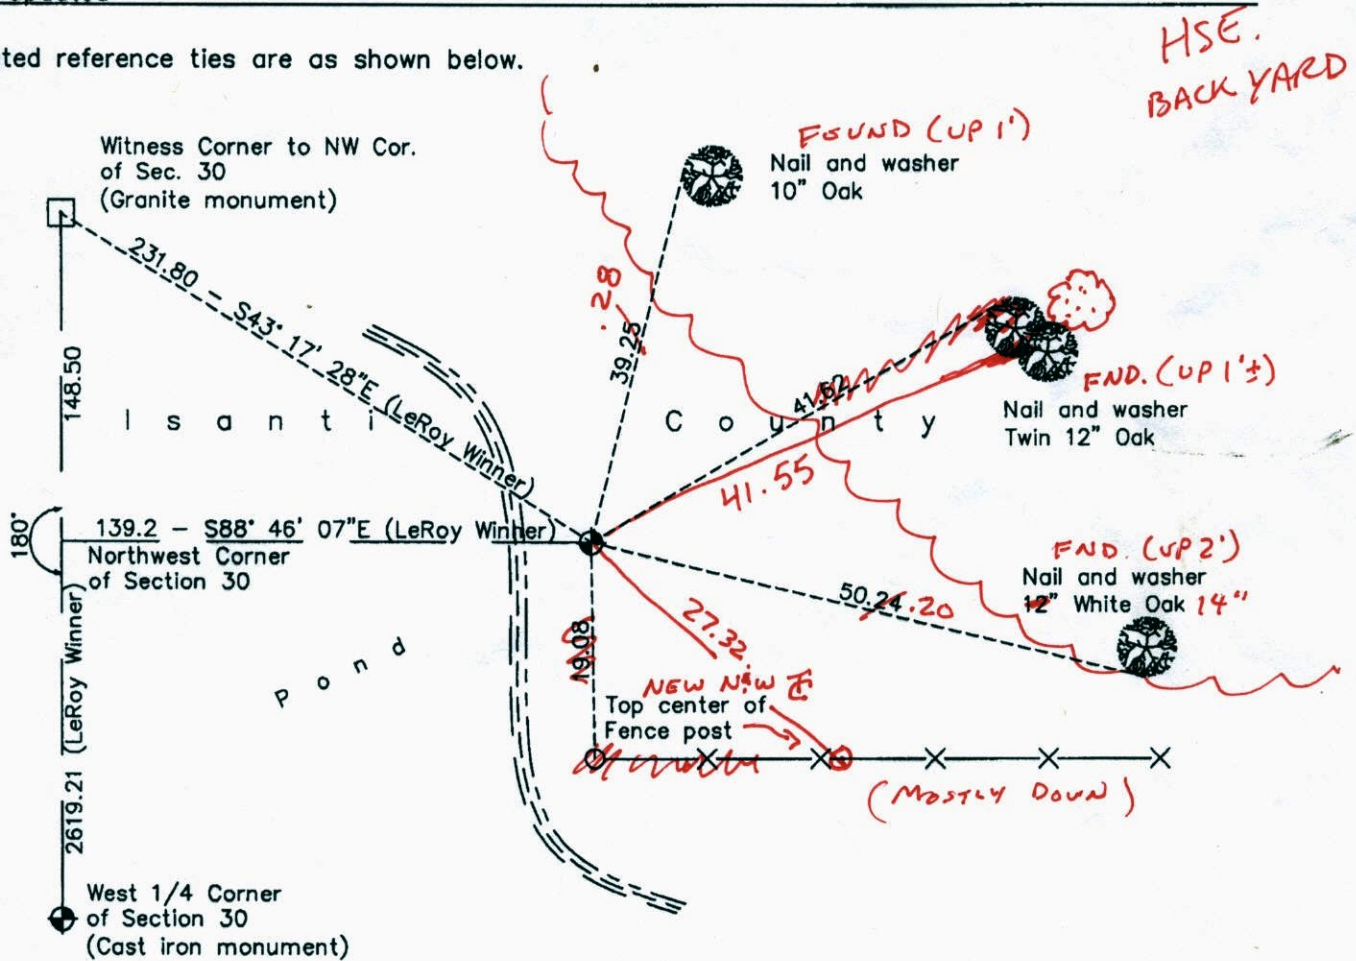 ted reference ties are as shown below.
HSE.
BACK YARD
Witness Corner to NW Cor.
of Sec. 30
(Granite monument)
FOUND (UP 1')
Nail and washer
10" Oak
231.80 - S43° 17' 28"E (LeRoy Winner)
148.50
.28
39.25
41.52
FND. (UP 1'±)
Nail and washer
Twin 12" Oak
Isanti County
41.55
180°
139.2 - S88° 46' 07"E (LeRoy Winner)
Northwest Corner
of Section 30
FND. (UP 2')
Nail and washer
12" White Oak 14"
50.24 .20
19.08
27.32
Pond
2619.21 (LeRoy Winner)
NEW N&W
Top center of
Fence post
(MOSTLY DOWN)
West 1/4 Corner
of Section 30
(Cast iron monument)